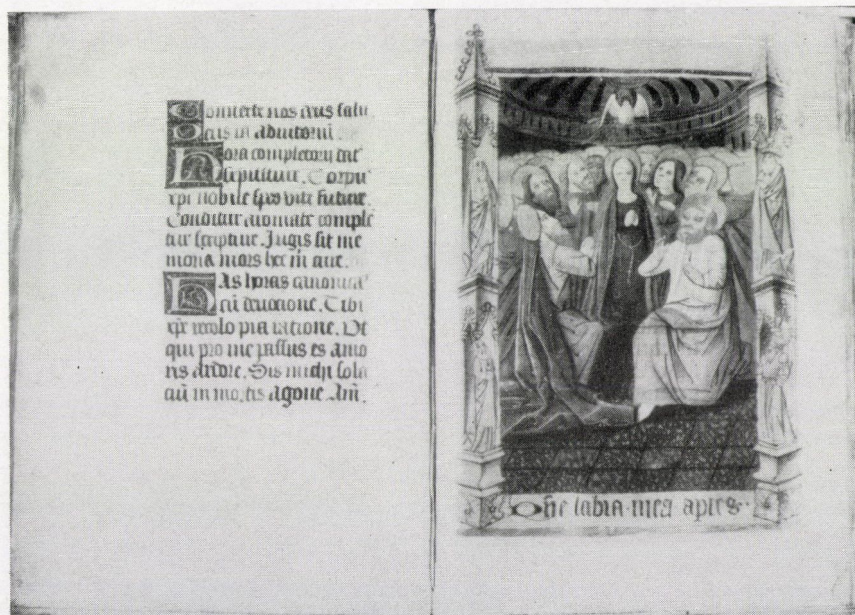 Conuerte nos deus salu
Deus in adiutoriu
Hora completorij dat
sepulture. Corpus
xpi nobile spes vite future.
Conditur aromate comple
tur scripture. Jugis sit me
moria mors hec in aue.
Has horas canonica
cu deuocione. Tibi
xpe recolo pia racione. Vt
qui pro me passus es amo
ris ardore. Sis michi sola
ciu in mortis agone. Am.
One labia mea apies